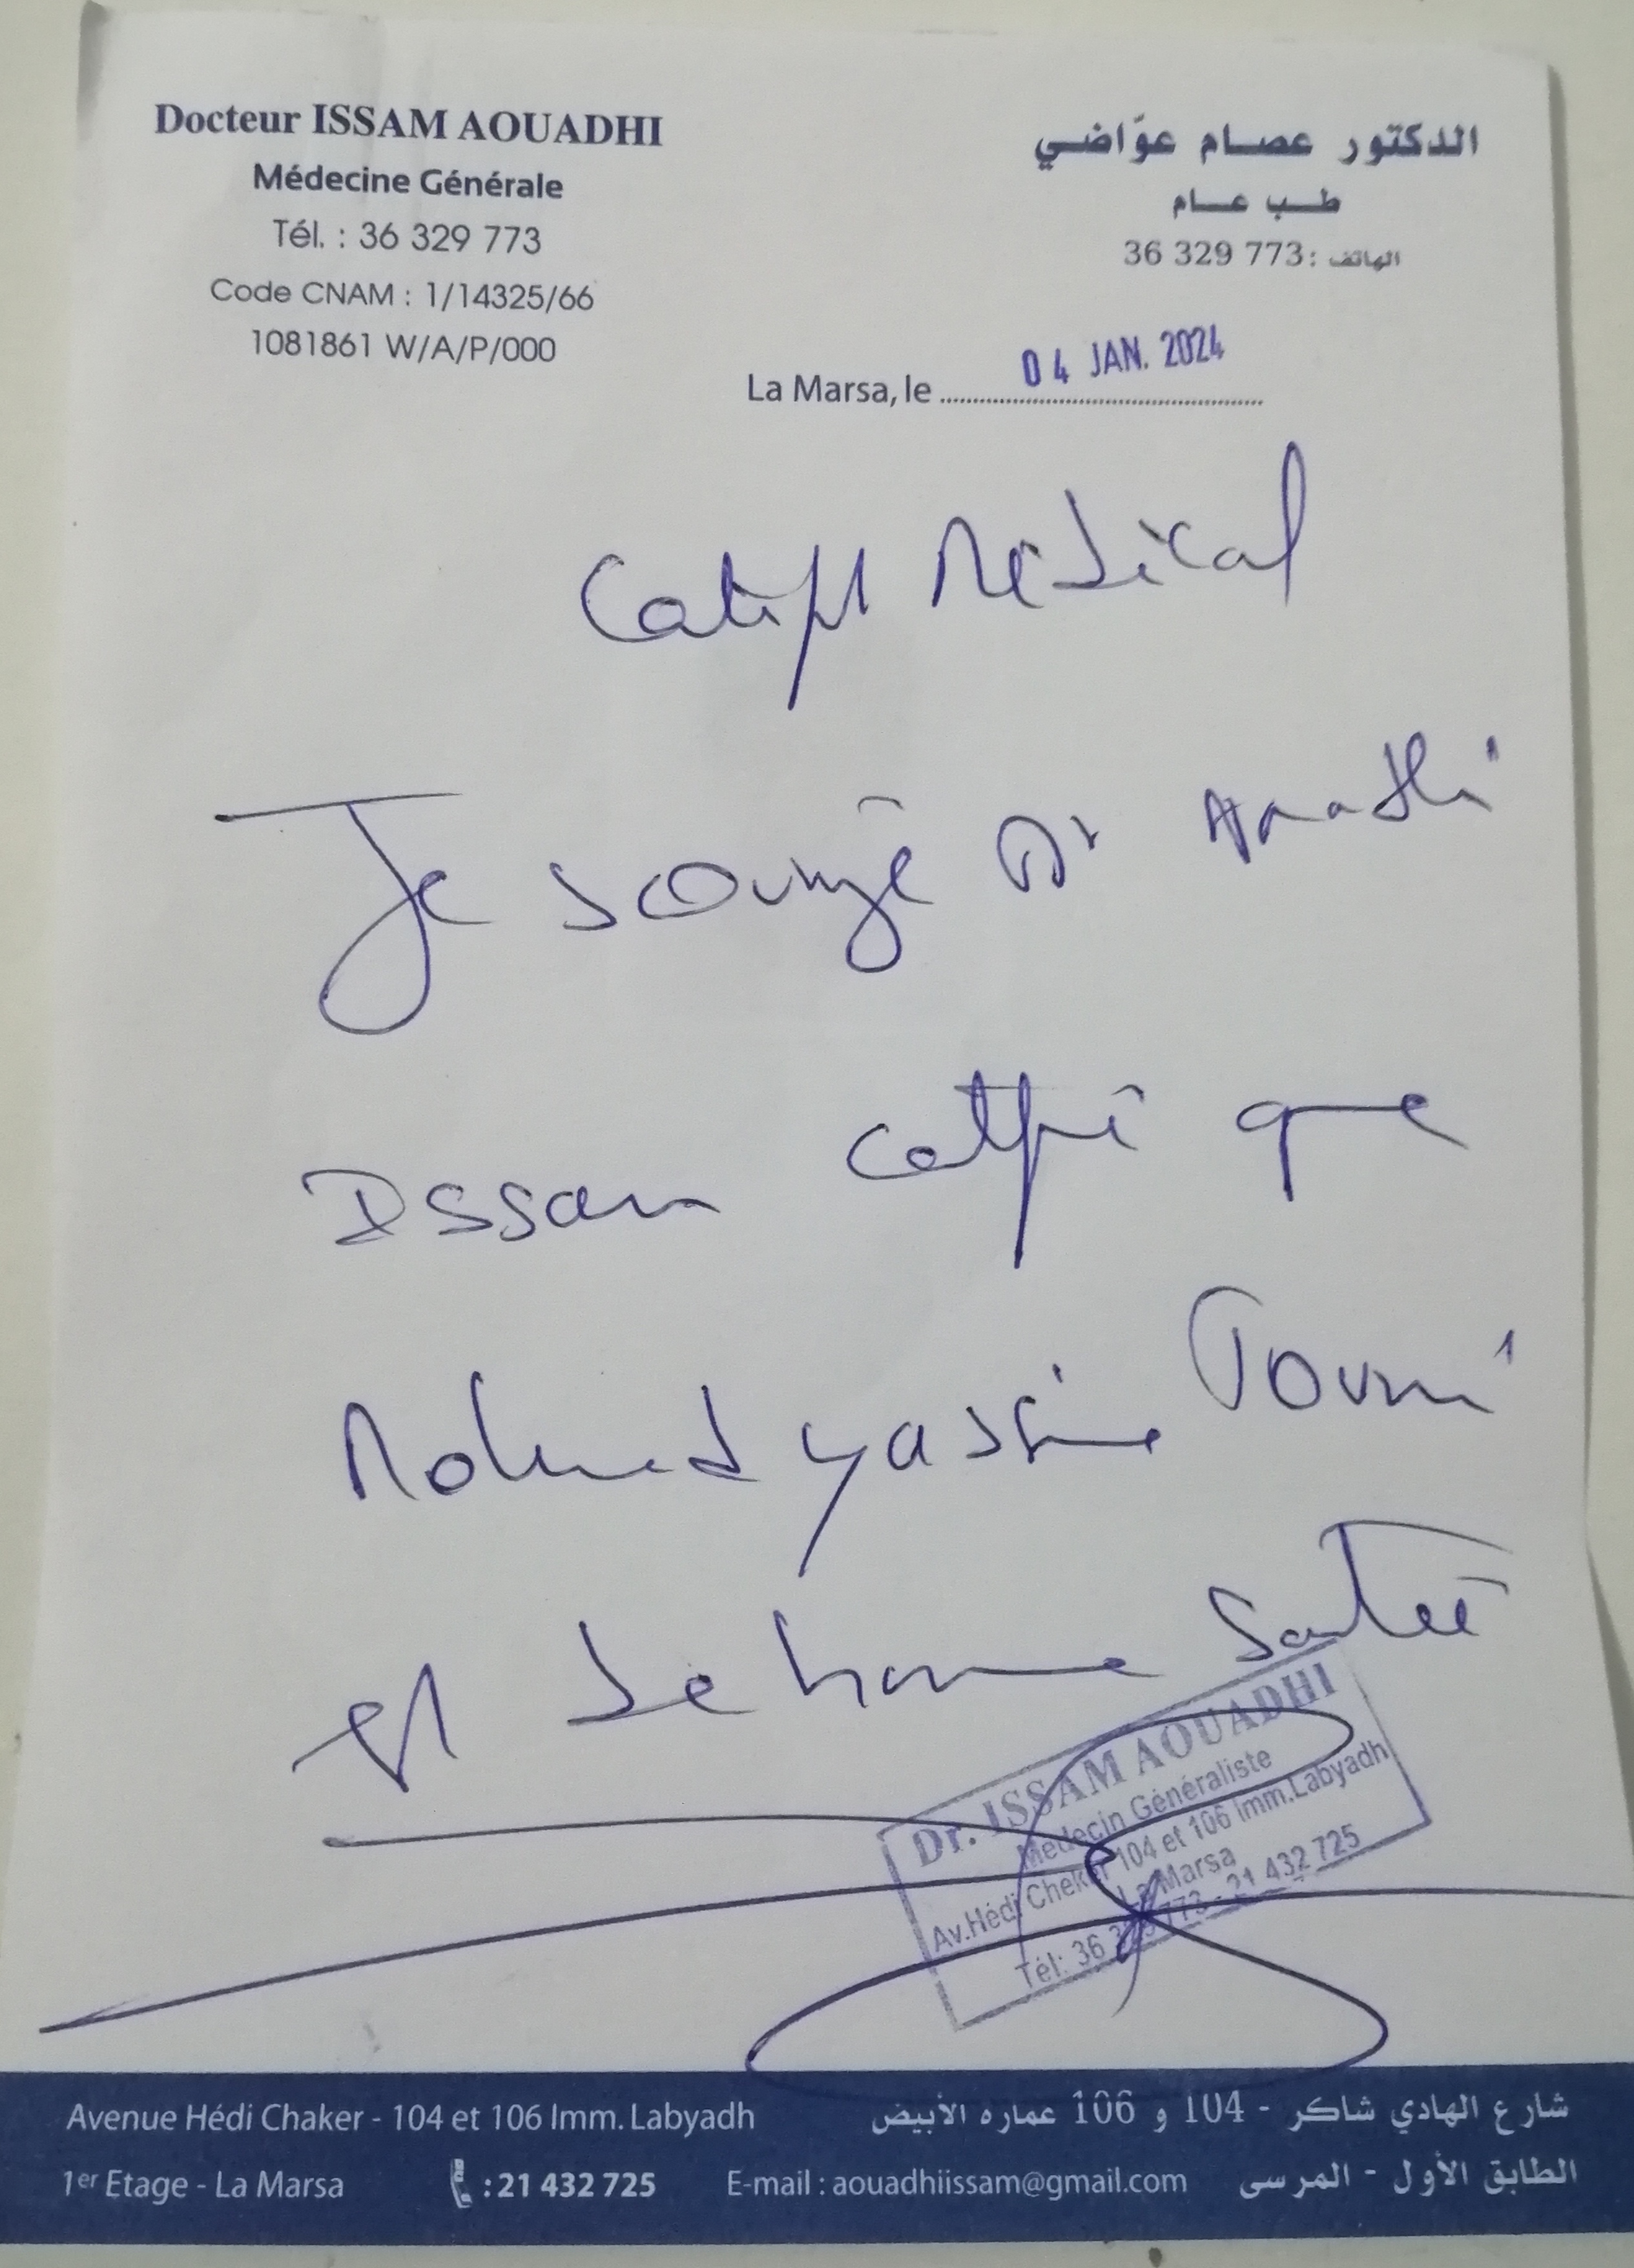 Docteur ISSAM AOUADHI
Médecine Générale
Tél. : 36 329 773
Code CNAM : 1/14325/66
1081861 W/A/P/000
الدكتور عصام عوّاضي
طب عام
الهاتف : 36 329 773
La Marsa, le 04 JAN. 2024
Certificat Médical
Je soussigné Dr Aouadhi
Issam certifie que
Mohamed yassine Toumi
est de bonne Santé
Dr. ISSAM AOUADHI
Médecin Généraliste
Av.Hédi Cheker 104 et 106 Imm.Labyadh
La Marsa
Tél: 36 329 773 - 21 432 725
Avenue Hédi Chaker - 104 et 106 Imm. Labyadh
شارع الهادي شاكر - 104 و 106 عماره الأبيض
1er Etage - La Marsa : 21 432 725 E-mail : aouadhiissam@gmail.com
الطابق الأول - المرسى